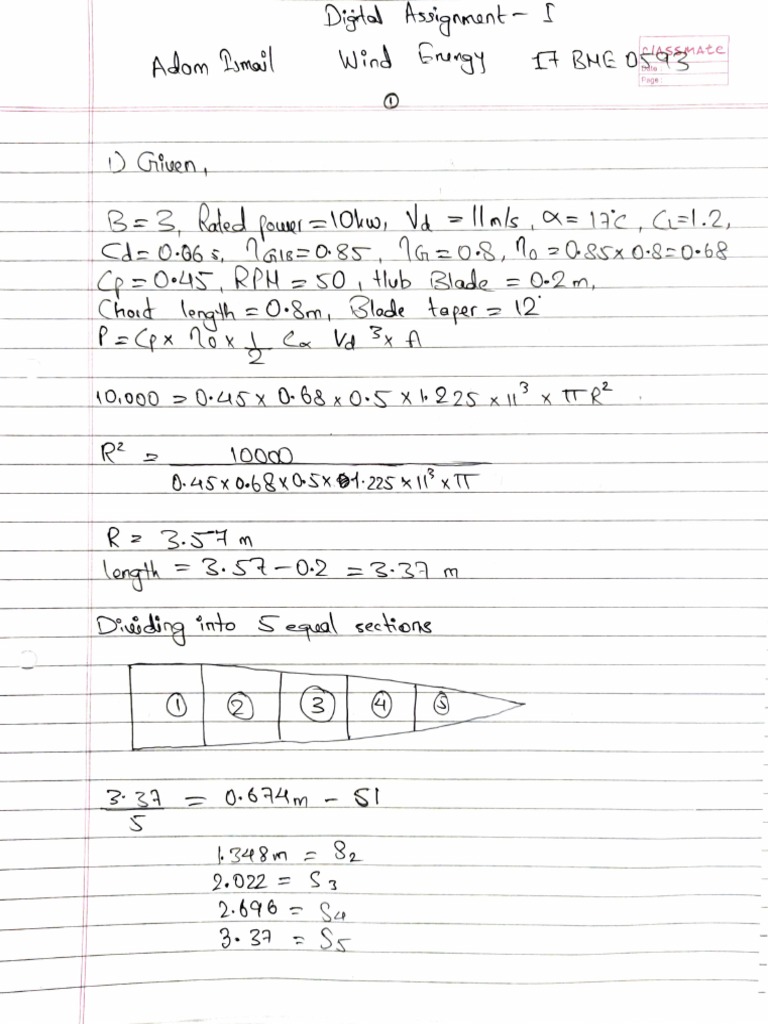 Digital Assignment - I
Adam Ismail Wind Energy 17 BME 0593
CLASSMATE
Date :
Page :
①
1) Given,
B = 3, Rated power = 10kw, Vd = 11m/s, α = 17°C, CL = 1.2,
Cd = 0.06 s, ηG1B = 0.85, ηG = 0.8, η0 = 0.85 x 0.8 = 0.68
Cp = 0.45, RPM = 50, Hub Blade = 0.2 m,
Chord length = 0.8m, Blade taper = 12°
P = Cp x η0 x 1/2 ρa Vd ³ x A
10,000 = 0.45 x 0.68 x 0.5 x 1.225 x 11³ x π R²
R² = 10000 / 0.45 x 0.68 x 0.5 x 1.225 x 11³ x π
R = 3.57 m
length = 3.57 - 0.2 = 3.37 m
Dividing into 5 equal sections
① ② ③ ④ ⑤
3.37 / 5 = 0.674m - S1
1.348m = S2
2.022 = S3
2.696 = S4
3.37 = S5